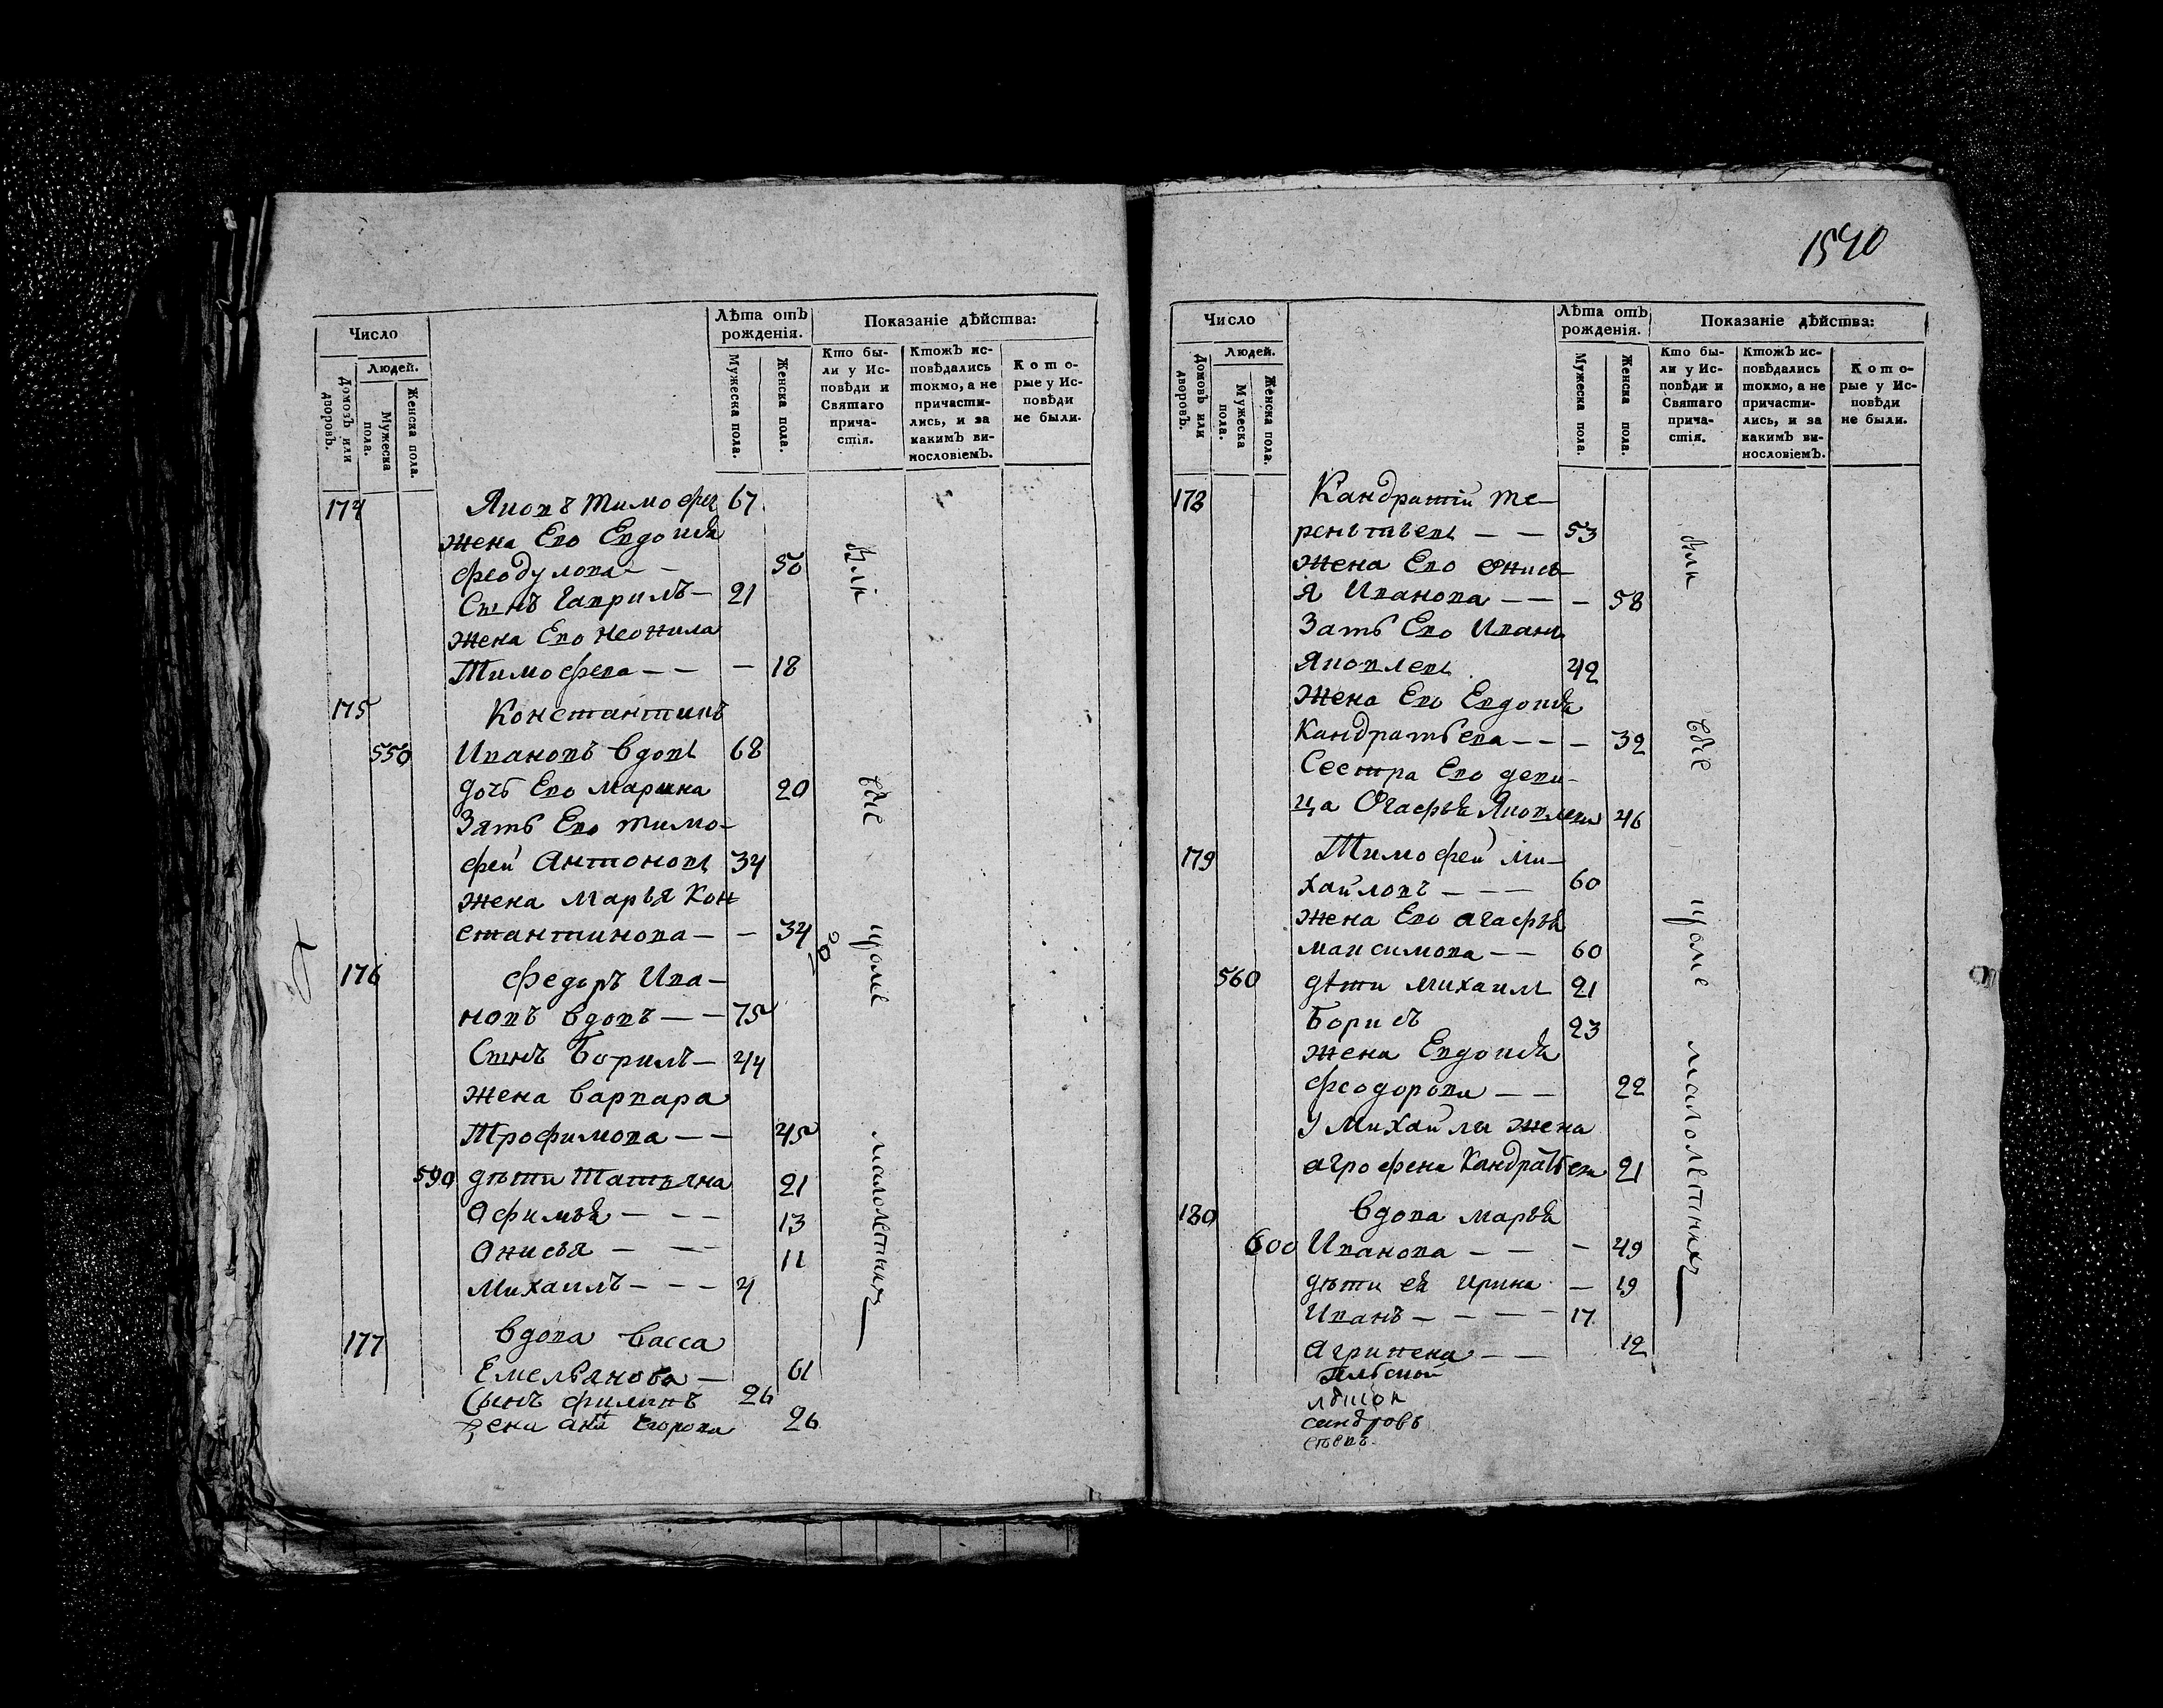 1590
Число
Людей.
Домовъ или дворовъ.
Мужеска пола.
Женска пола.
Лѣта отъ
рожденія.
Мужеска пола.
Женска пола.
Показаніе дѣйства:
Кто бы-
ли у Ис-
повѣди и
Святаго
прича-
стія.
Ктожъ ис-
повѣдались
токмо, а не
причасти-
лись, и за
какимъ ви-
нословіемъ.
Кото-
рые у Ис-
повѣди
не были.
174 Тимофеи 67
жена Его Евдокія
Феодулова — — 50
Сынъ Гаврилъ — 21
жена Его Неонила
Тимофева — — — 18
175 Константинъ
550 Ивановъ вдовъ 68
дочь Его Марина 20
Зять Его Тимо-
фей Антоновъ 34
жена Марья Кон
стантинова — — 34
176 Федоръ Ива-
новъ вдовъ — — 75
Сынъ Борисъ — 44
жена Варвара
Трофимова — — 45
590 дѣти Татьяна 21
Афимья — — — 13
Анисья — — — 11
Михаилъ — — — 4
177 вдова Васса
Емельянова — 61
Сынъ Филипъ 26
жена Егорова 26
были
всѣ
кроме
малолетнихъ
Число
Людей.
Домовъ или дворовъ.
Мужеска пола.
Женска пола.
Лѣта отъ
рожденія.
Мужеска пола.
Женска пола.
Показаніе дѣйства:
Кто бы-
ли у Ис-
повѣди и
Святаго
прича-
стія.
Ктожъ ис-
повѣдались
токмо, а не
причасти-
лись, и за
какимъ ви-
нословіемъ.
Кото-
рые у Ис-
повѣди
не были.
178 Кандратій Те-
рентьевъ — — 53
жена Его Онись-
я Иванова — — — 58
Зять Его Иванъ
Яковлевъ 42
жена Его Евдокія
Кандратьева — — — 32
Сестра Его деви-
ца Огафья Яковлева 46
179 Тимофей Ми-
хайловъ — — — 60
жена Его Агафья
Максимова — — 60
560 дѣти Михаилъ 21
Борисъ 23
жена Евдокія
Феодорова — — 22
У Михайлы жена
Агрофена Кандратьева 21
180 вдова Марья
600 Иванова — — — 49
дѣти ея Ирина — 19
Иванъ — — — — 17
Агрипена — — 12
были
всѣ
кроме
малолетнихъ